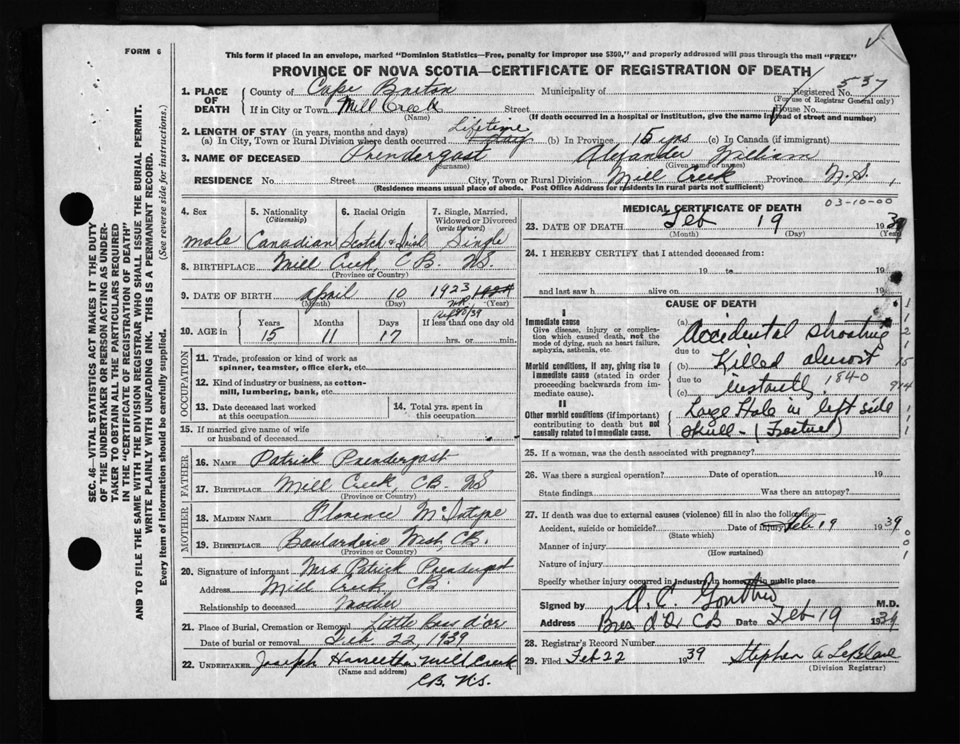 FORM 6
This form if placed in an envelope, marked "Dominion Statistics—Free, penalty for improper use $300," and properly addressed will pass through the mail "FREE"
PROVINCE OF NOVA SCOTIA—CERTIFICATE OF REGISTRATION OF DEATH
SEC. 46—VITAL STATISTICS ACT MAKES IT THE DUTY
OF THE UNDERTAKER OR PERSON ACTING AS UNDER-
TAKER TO OBTAIN ALL THE PARTICULARS REQUIRED
IN THE "CERTIFICATE OF REGISTRATION OF DEATH"
AND TO FILE THE SAME WITH THE DIVISION REGISTRAR WHO SHALL ISSUE THE BURIAL PERMIT.
WRITE PLAINLY WITH UNFADING INK. THIS IS A PERMANENT RECORD.
Every item of information should be carefully supplied. (See reverse side for instructions.)
1. PLACE OF DEATH
County of Cape Breton Municipality of Registered No. 537
(For use of Registrar General only)
If in City or Town Mill Creek Street House No.
(Name) (If death occurred in a hospital or institution, give the name instead of street and number)
2. LENGTH OF STAY (in years, months and days)
(a) In City, Town or Rural Division where death occurred Lifetime (b) In Province 15 yrs (c) In Canada (if immigrant)
3. NAME OF DECEASED Prendergast Alexander William
(Surname) (Given name or names)
RESIDENCE No. Street City, Town or Rural Division Mill Creek Province N.S.
(Residence means usual place of abode. Post Office Address for residents in rural parts not sufficient)
4. Sex
male
5. Nationality
(Citizenship)
Canadian
6. Racial Origin
Scotch & Irish
7. Single, Married,
Widowed or Divorced
(write the word)
Single
8. BIRTHPLACE Mill Creek, C.B. N.S.
(Province or Country)
9. DATE OF BIRTH April 10 1923
(Month) (Day) (Year)
10. AGE in
Years 15
Months 11
Days 17
If less than one day old
hrs. or min.
OCCUPATION
11. Trade, profession or kind of work as
spinner, teamster, office clerk, etc.
12. Kind of industry or business, as cotton-
mill, lumbering, bank, etc.
13. Date deceased last worked
at this occupation
14. Total yrs. spent in
this occupation
15. If married give name of wife
or husband of deceased
FATHER
16. NAME Patrick Prendergast
17. BIRTHPLACE Mill Creek CB NS
(Province or Country)
MOTHER
18. MAIDEN NAME Florence McIntyre
19. BIRTHPLACE Boularderie West, C.B.
(Province or Country)
20. Signature of informant Mrs Patrick Prendergast
Address Mill Creek CB
Relationship to deceased Mother
21. Place of Burial, Cremation or Removal Little Bras d'or
Date of burial or removal Feb. 22, 1939
22. UNDERTAKER Joseph Mill Creek
(Name and address)
C.B. N.S.
MEDICAL CERTIFICATE OF DEATH
03-10-00
23. DATE OF DEATH Feb 19 1939
(Month) (Day) (Year)
24. I HEREBY CERTIFY that I attended deceased from:
19 to 19
and last saw h alive on 19
CAUSE OF DEATH
I
Immediate cause
Give disease, injury or complica-
tion which caused death, not the
mode of dying, such as heart failure,
asphyxia, asthenia, etc.
Morbid conditions, if any, giving rise to
immediate cause (stated in order
proceeding backwards from im-
mediate cause).
II
Other morbid conditions (if important)
contributing to death but not
causally related to immediate cause.
(a) Accidental shooting
due to
(b) Killed almost
due to
(c) 1840
Large Hole in left side
skull - (Fracture)
25. If a woman, was the death associated with pregnancy?
26. Was there a surgical operation? Date of operation 19
State findings Was there an autopsy?
27. If death was due to external causes (violence) fill in also the following:
Accident, suicide or homicide? Date of injury Feb 19 1939
(State which)
Manner of injury
(How sustained)
Nature of injury
Specify whether injury occurred in industry, in home or in public place
Signed by M.D.
Address Bras d'Or CB Date Feb 19 1939
28. Registrar's Record Number
29. Filed Feb 22 1939 Stephen A LeBlanc
(Division Registrar)